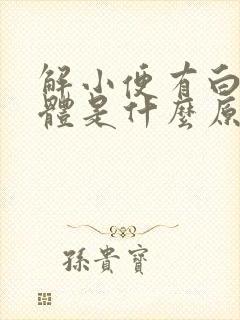 解小便有白
體是什麼原
孫貴寶